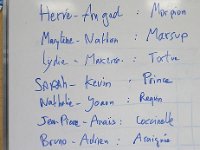 Hervé - Angad : Morpion
Marylène - Nathan : Marsup
Lydie - Maxime : Tortue
SARAH - Kevin : Prince
Nathalie - Yoann : Requin
Jean-Pierre - Anaïs : Coccinelle
Bruno - Adrien : Araignée